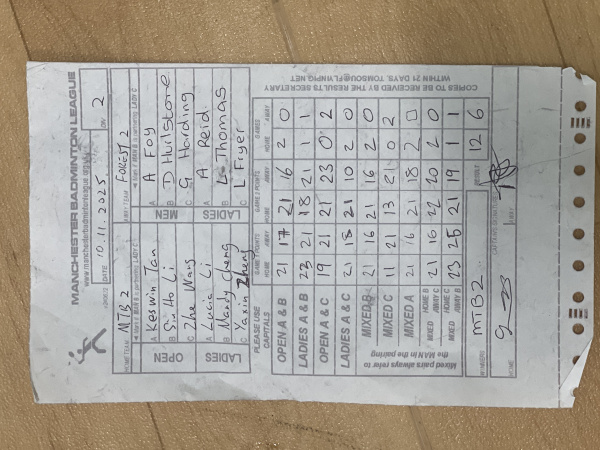 MANCHESTER BADMINTON LEAGUE
www.manchesterbadmintonleague.org.uk
DATE 10.11.2025 DIV 2
HOME TEAM MTB2 AWAY TEAM FOREST 2
Mark if MAN B is partnering LADY C Mark if MAN B is partnering LADY C
OPEN MEN
A Koswin Tan A A Foy
B Sin Ho Li B D Hurlstone
C Zhe Wang C G Harding
LADIES LADIES
A Lucia Li A A Reid
B Mandy Cheng B L Thomas
C Yaxin Zheng C L Fryer
PLEASE USE CAPITALS GAME 1 POINTS GAME 2 POINTS GAME 3 POINTS GAMES
HOME AWAY HOME AWAY HOME AWAY
OPEN A & B 21 17 21 16 2 0
LADIES A & B 23 21 18 21 1 1
OPEN A & C 19 21 21 23 0 2
LADIES A & C 21 18 21 10 2 0
MIXED B 21 16 21 16 2 0
MIXED C 11 21 13 21 0 2
MIXED A 21 16 21 18 2 0
MIXED HOME B AWAY C 21 16 22 20 2 0
MIXED HOME C AWAY B 23 25 21 19 1 1
Mixed pairs always refer to the MAN in the pairing
WINNERS MTB2 RESULT 12 6
CAPTAINS SIGNATURES
HOME AWAY
COPIES TO BE RECEIVED BY THE RESULTS SECRETARY
WITHIN 21 DAYS. TOMSOU@FLYINPIG.NET